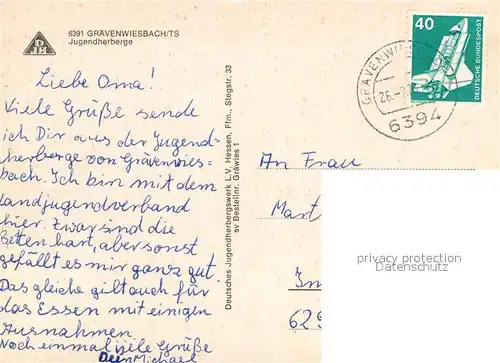 6391 GRÄVENWIESBACH/TS
Jugendherberge
DJH
Liebe Oma!
Viele Grüße sende
ich Dir aus der Jugend-
herberge von Grävenwies-
bach. Ich bin mit dem
Landjugendverband
hier. Zwar sind die
Betten hart, aber sonst
gefällt es mir ganz gut.
Das gleiche gilt auch für
das Essen mit einigen
Ausnahmen.
Noch einmal viele Grüße
Dein Michael
Deutsches Jugendherbergswerk L.V. Hessen, Ffm., Stegstr. 33
sv Bestellnr. Gräwies 1
40
DEUTSCHE BUNDESPOST
6394
An Frau
privacy protection
Datenschutz